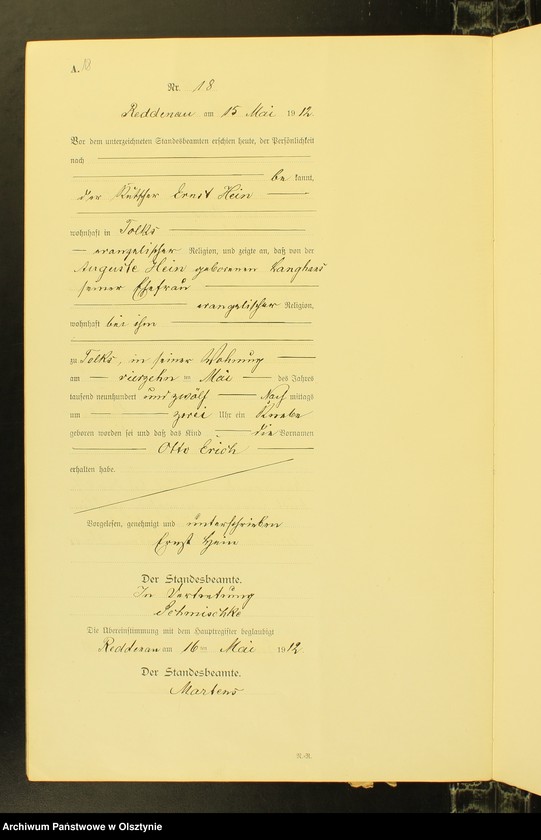 A. 18
Nr. 18
Reddenau am 15 Mai 1912
Vor dem unterzeichneten Standesbeamten erschien heute, der Persönlichkeit
nach
be kannt,
der Kutscher Ernst Hein
wohnhaft in Tolks
evangelischer Religion, und zeigte an, daß von der
Auguste Hein geborenen Langhaus
seiner Ehefrau
evangelischer Religion,
wohnhaft bei ihm
zu Tolks, in seiner Wohnung
am vierzehn ten Mai des Jahres
tausend neunhundert und zwölf Nach mittags
um zwei Uhr ein Knabe
geboren worden sei und daß das Kind die Vornamen
Otto Erich
erhalten habe.
Vorgelesen, genehmigt und unterschrieben
Ernst Hein
Der Standesbeamte.
In Vertretung
Schmischke
Die Übereinstimmung mit dem Hauptregister beglaubigt
Reddenau am 16 ten Mai 1912
Der Standesbeamte.
Martens
N.-R.
Archiwum Państwowe w Olsztynie